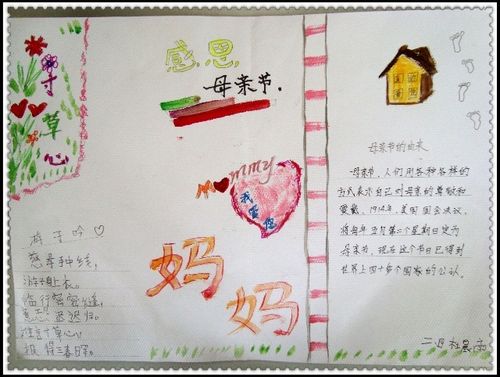 寸
草
心
感恩
母亲节.
Mommy
我爱您
妈
妈
游子吟
慈母手中线,
游子身上衣。
临行密密缝,
意恐迟迟归。
谁言寸草心,
报得三春晖。
母亲节的由来
母亲节,人们用各种各样的
方式表示自己对母亲的尊敬和
爱戴。1914年,美国国会决议,
将每年五月第二个星期日定为
母亲节,现在这个节日已得到
世界上四十多个国家的公认。